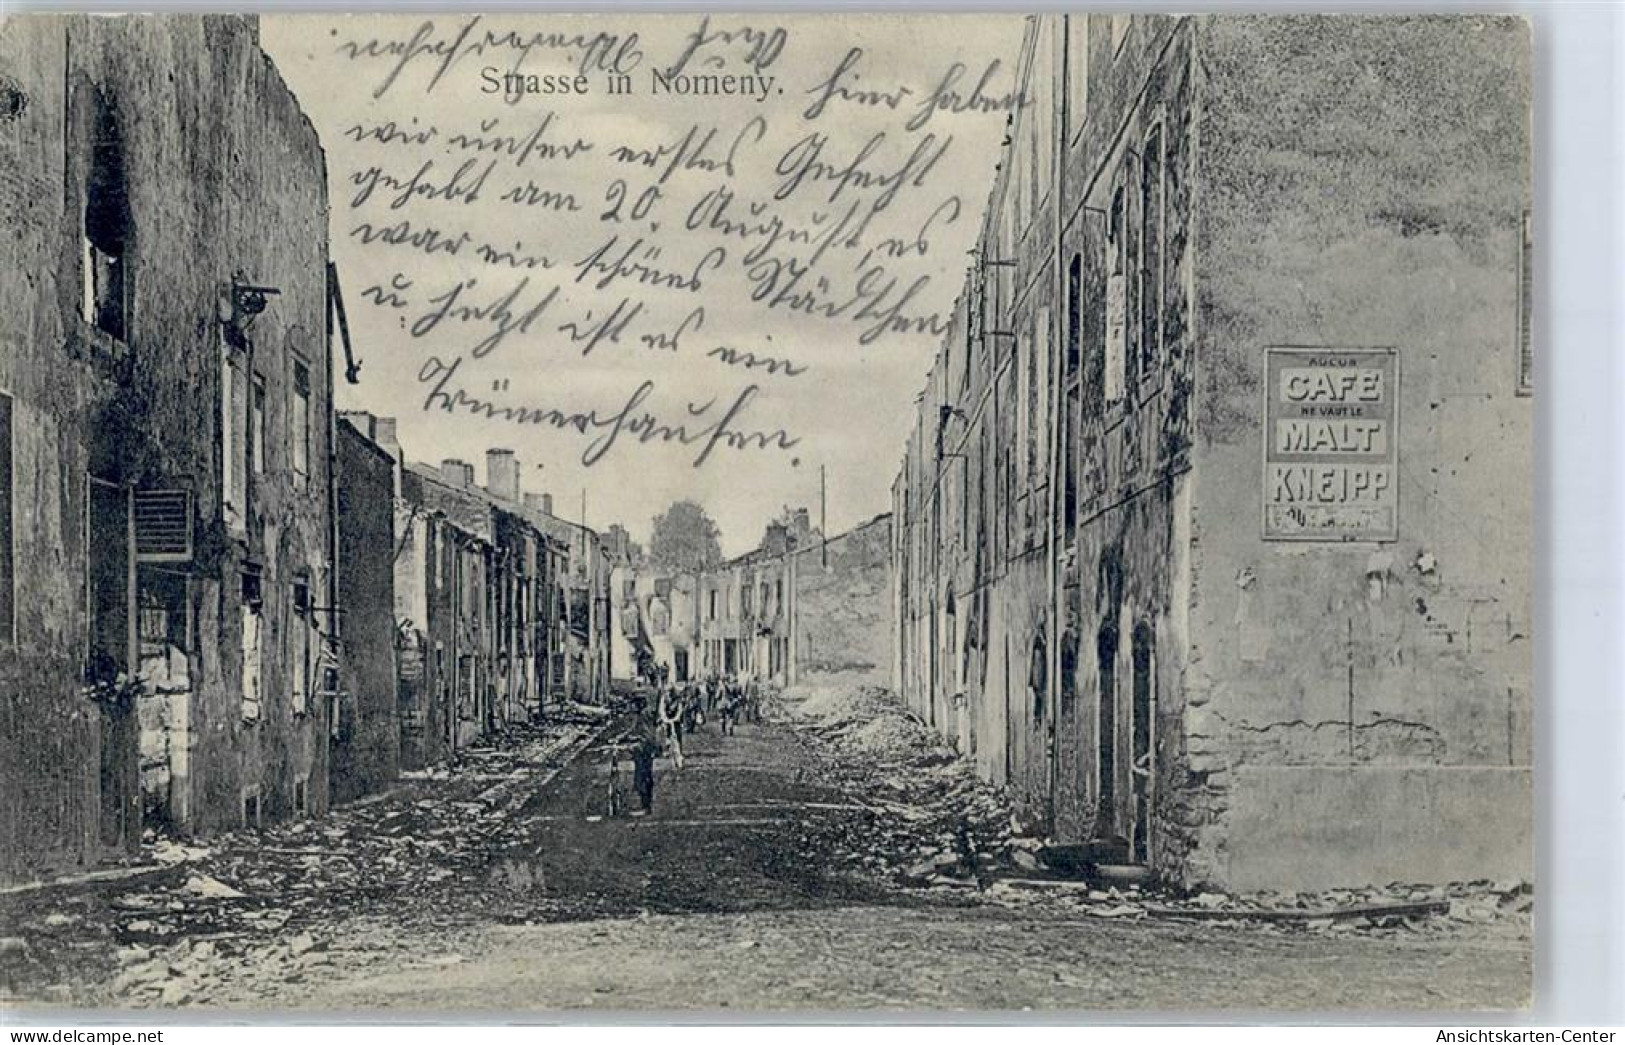 Strasse in Nomeny.
hier haben
wir unser erstes Gefecht
gehabt am 20. August, es
war ein schönes Städtchen
u. jetzt ist es ein
Trümerhaufen.
AUCUN
CAFÉ
NE VAUT LE
MALT
KNEIPP
Ansichtskarten-Center